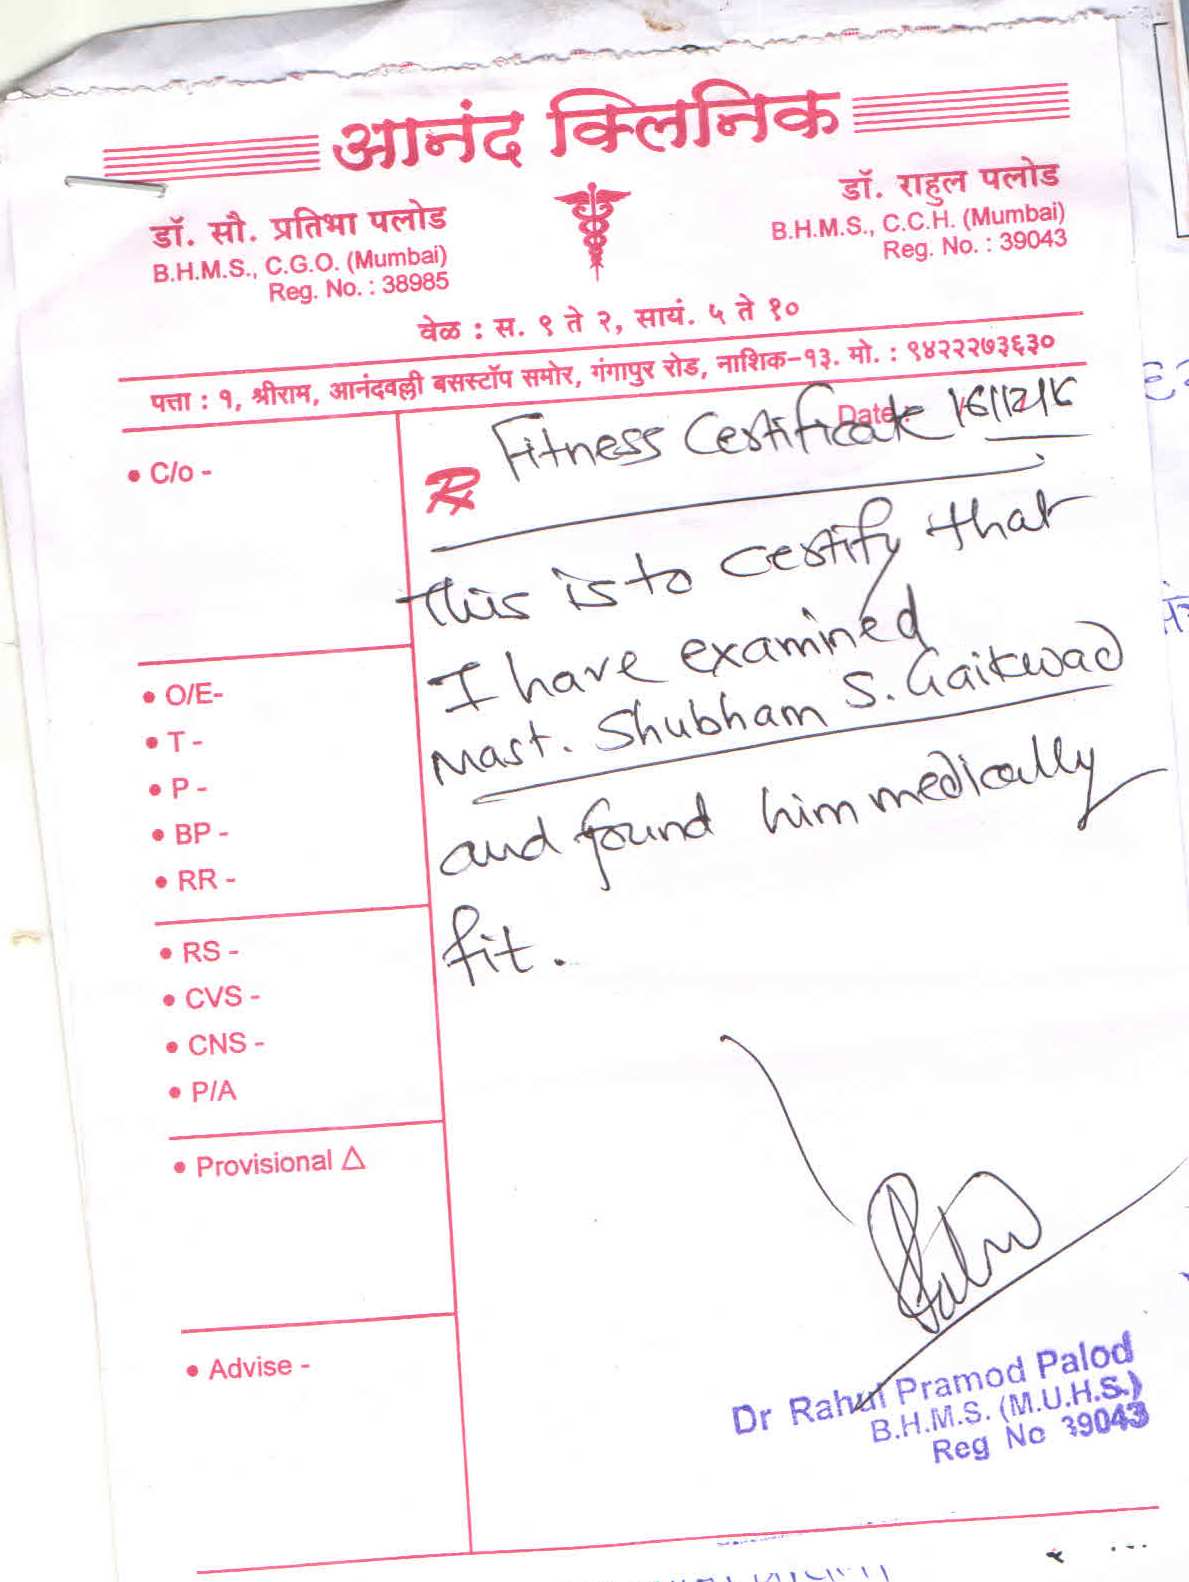 आनंद क्लिनिक
डॉ. सौ. प्रतिभा पलोड
B.H.M.S., C.G.O. (Mumbai)
Reg. No. : 38985
डॉ. राहुल पलोड
B.H.M.S., C.C.H. (Mumbai)
Reg. No. : 39043
वेळ : स. ९ ते २, सायं. ५ ते १०
पत्ता : १, श्रीराम, आनंदवल्ली बसस्टॉप समोर, गंगापुर रोड, नाशिक-१३. मो. : ९४२२२७३६३०
Date : 16/12/16
• C/o -
Rx Fitness Certificate
This is to certify that
I have examined
Mast. Shubham S. Gaikwad
and found him medically
fit.
• O/E-
• T -
• P -
• BP -
• RR -
• RS -
• CVS -
• CNS -
• P/A
• Provisional Δ
• Advise -
Dr Rahul Pramod Palod
B.H.M.S. (M.U.H.S.)
Reg No 39043